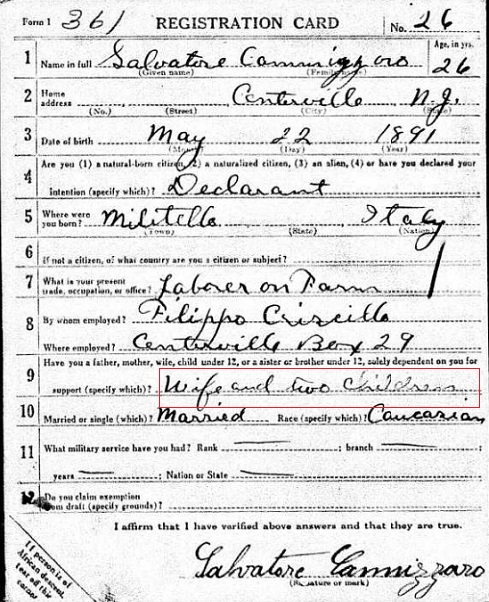 Form 1 361 REGISTRATION CARD No. 26
1 Name in full Salvatore Cannizzaro Age, in yrs. 26
(Given name) (Family name)
2 Home address Centerville N.J.
(No.) (Street) (City) (State)
3 Date of birth May 22 1891
(Month) (Day) (Year)
Are you (1) a natural-born citizen, (2) a naturalized citizen, (3) an alien, (4) or have you declared your
4 intention (specify which)? Declarant
5 Where were you born? Militello Italy
(Town) (State) (Nation)
6 If not a citizen, of what country are you a citizen or subject?
7 What is your present trade, occupation, or office? Laborer on Farm 1
8 By whom employed? Filippo Criscillo
Where employed? Centerville Box 29
Have you a father, mother, wife, child under 12, or a sister or brother under 12, solely dependent on you for
9 support (specify which)? Wife and two children
10 Married or single (which)? Married Race (specify which)? Caucasian
11 What military service have you had? Rank ; branch
years ; Nation or State
12 Do you claim exemption from draft (specify grounds)?
I affirm that I have verified above answers and that they are true.
Salvatore Cannizzaro
(Signature or mark)
If person is of
African descent,
tear off this
corner